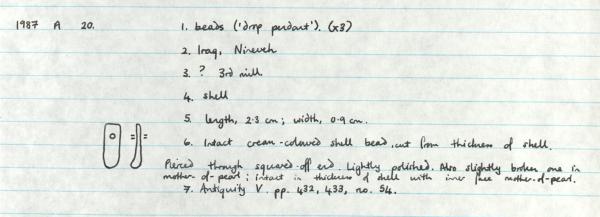 1987 A 20. 1. beads ('drop pendant'). (x3)
2. Iraq, Nineveh
3. ? 3rd mill.
4. shell
5. length, 2.3 cm ; width, 0.9 cm.
6. Intact cream-coloured shell bead, cut from thickness of shell.
Pierced through squared-off end. Lightly polished. Also slightly broken one in
mother-of-pearl ; intact in thickness of shell with inner face mother-of-pearl.
7. Antiquity V. pp. 432, 433, no. 54.